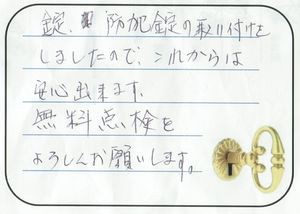 錠、防犯錠の取り付けを
しましたので、これからは
安心出来ます。
無料点検を
よろしくお願いします。